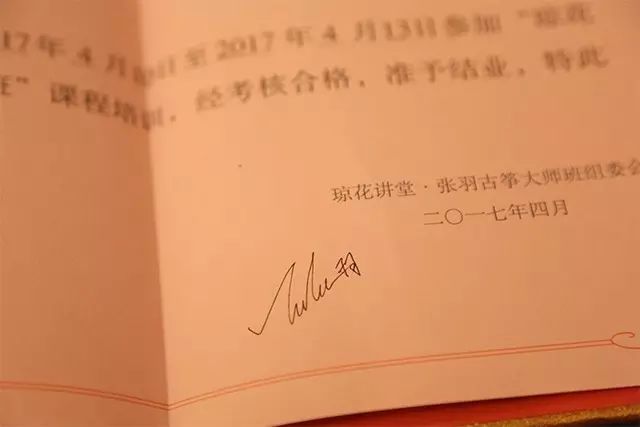 17年4月10日至2017年4月13日参加“琼花
班”课程培训,经考核合格,准予结业,特此
琼花讲堂·张羽古筝大师班组委会
二〇一七年四月